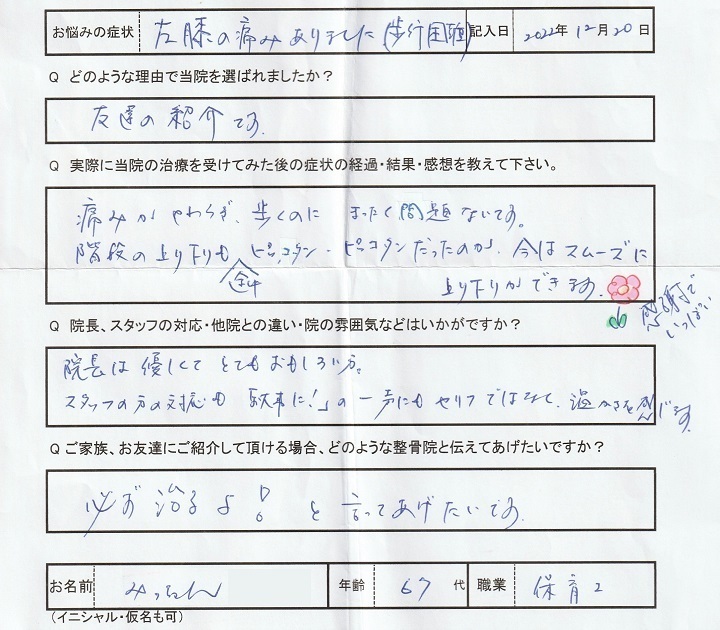 お悩みの症状 左膝の痛みありました(歩行困難) 記入日 2022年12月20日
Q どのような理由で当院を選ばれましたか？
友達の紹介です。
Q 実際に当院の治療を受けてみた後の症状の経過・結果・感想を教えて下さい。
痛みがやわらぎ、歩くのに まったく問題ないです。
階段の上り下りも ピッコタン・ピッコタンだったのが、今はスムーズに
上り下りができます。
感謝で
いっぱい
Q 院長、スタッフの対応・他院との違い・院の雰囲気などはいかがですか？
院長は優しくてとてもおもしろい方。
スタッフの方の対応も お大事に!」の一声にも セリフではなくて、温かさを感じます。
Q ご家族、お友達にご紹介して頂ける場合、どのような整骨院と伝えてあげたいですか？
必ず 治るよ! と 言ってあげたいです。
お名前 みっちゃん 年齢 67 代 職業 保育
（イニシャル・仮名も可）